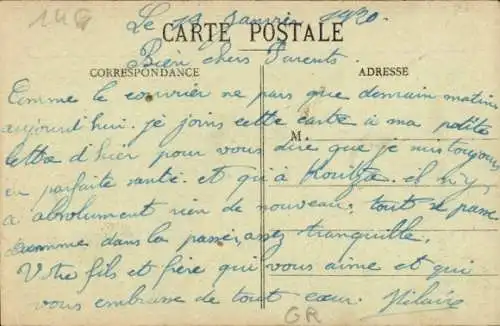 Le 13 Janvier 1920.
CARTE POSTALE
Bien chers Parents.
CORRESPONDANCE
ADRESSE
Comme le courrier ne pars que demain matin
aujourd'hui. je joins cette carte à ma petite
M.
lettre d'hier pour vous dire que je suis toujours
en parfaite santé. et qu'à il n'y
a absolument rien de nouveau. tout se passe
comme dans la passé, assez tranquille.
Votre fils et frère qui vous aime et qui
vous embrasse de tout cœur. Hilaire
GR